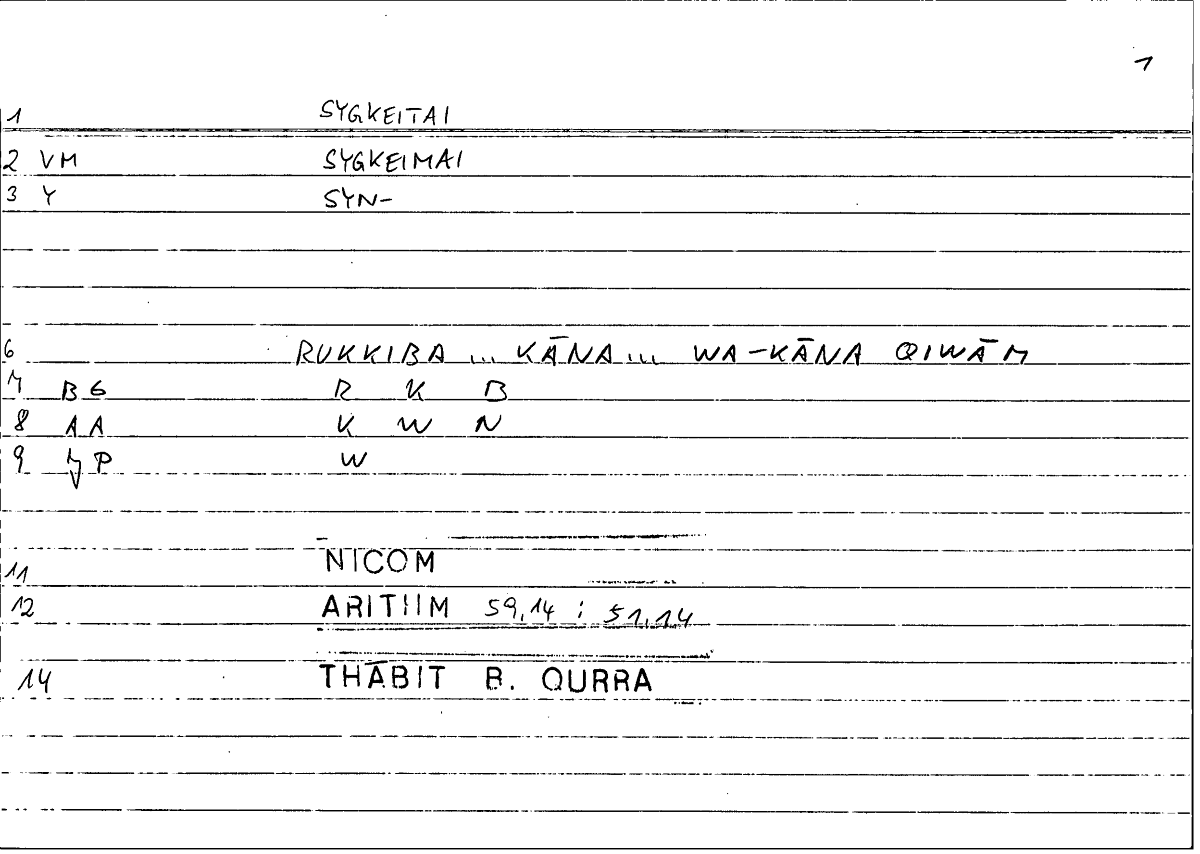 1
1 SYGKEITAI
2 VM SYGKEIMAI
3 Y SYN-
6 RUKKIBA ... KĀNA ... WA-KĀNA QIWĀM
7 BG R K B
8 AA K W N
9 P W
11 NICOM
12 ARITHM 59,14 ; 51,14
14 THĀBIT B. QURRA